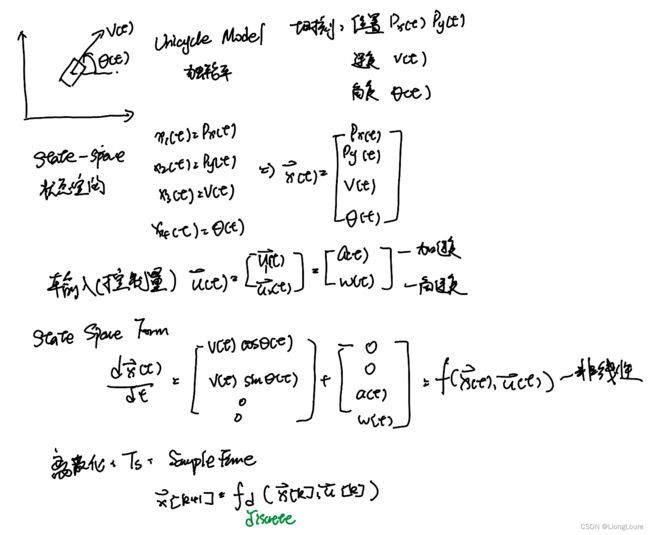 V(t)
θ(t)
Unicycle Model
独轮车
切换到：位置 Px(t) Py(t)
速度 V(t)
角度 θ(t)
State-Space
状态空间
x₁(t)=Px(t)
x₂(t)=Py(t)
x₃(t)=V(t)
x₄(t)=θ(t)
⇒ x⃗(t)=[Px(t) Py(t) V(t) θ(t)]
车输入(控制量) u⃗(t)=[u₁(t) u₂(t)]=[a(t) w(t)] —加速度 —角速度
State Space Form
dx⃗(t)/dt = [V(t) cosθ(t) V(t) sinθ(t) 0 0] + [0 0 a(t) w(t)] = f(x⃗(t), u⃗(t)) —非线性
离散化：Ts：Sample Time
x⃗[k+1] = fd (x⃗[k], u⃗[k])
discrete
CSDN @LiongLoure